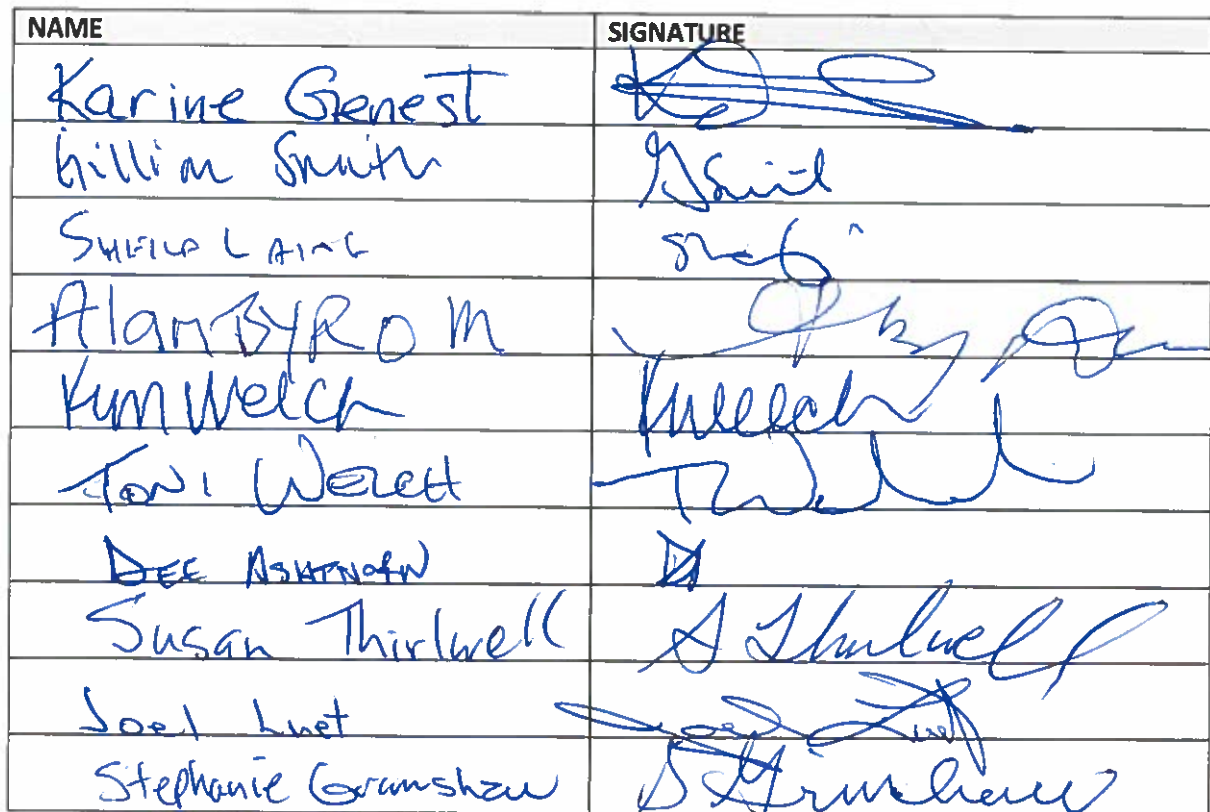 NAME SIGNATURE
Karine Genest
Gillian Smith GSmit
SHEILA LAING
Alan BYROM
Kym Welch KWelch
TONI WELCH TWelch
DEE
Susan Thirlwell S Thirlwell
Joel Luet Joel Luet
Stephanie Gramshaw S Grimshaw